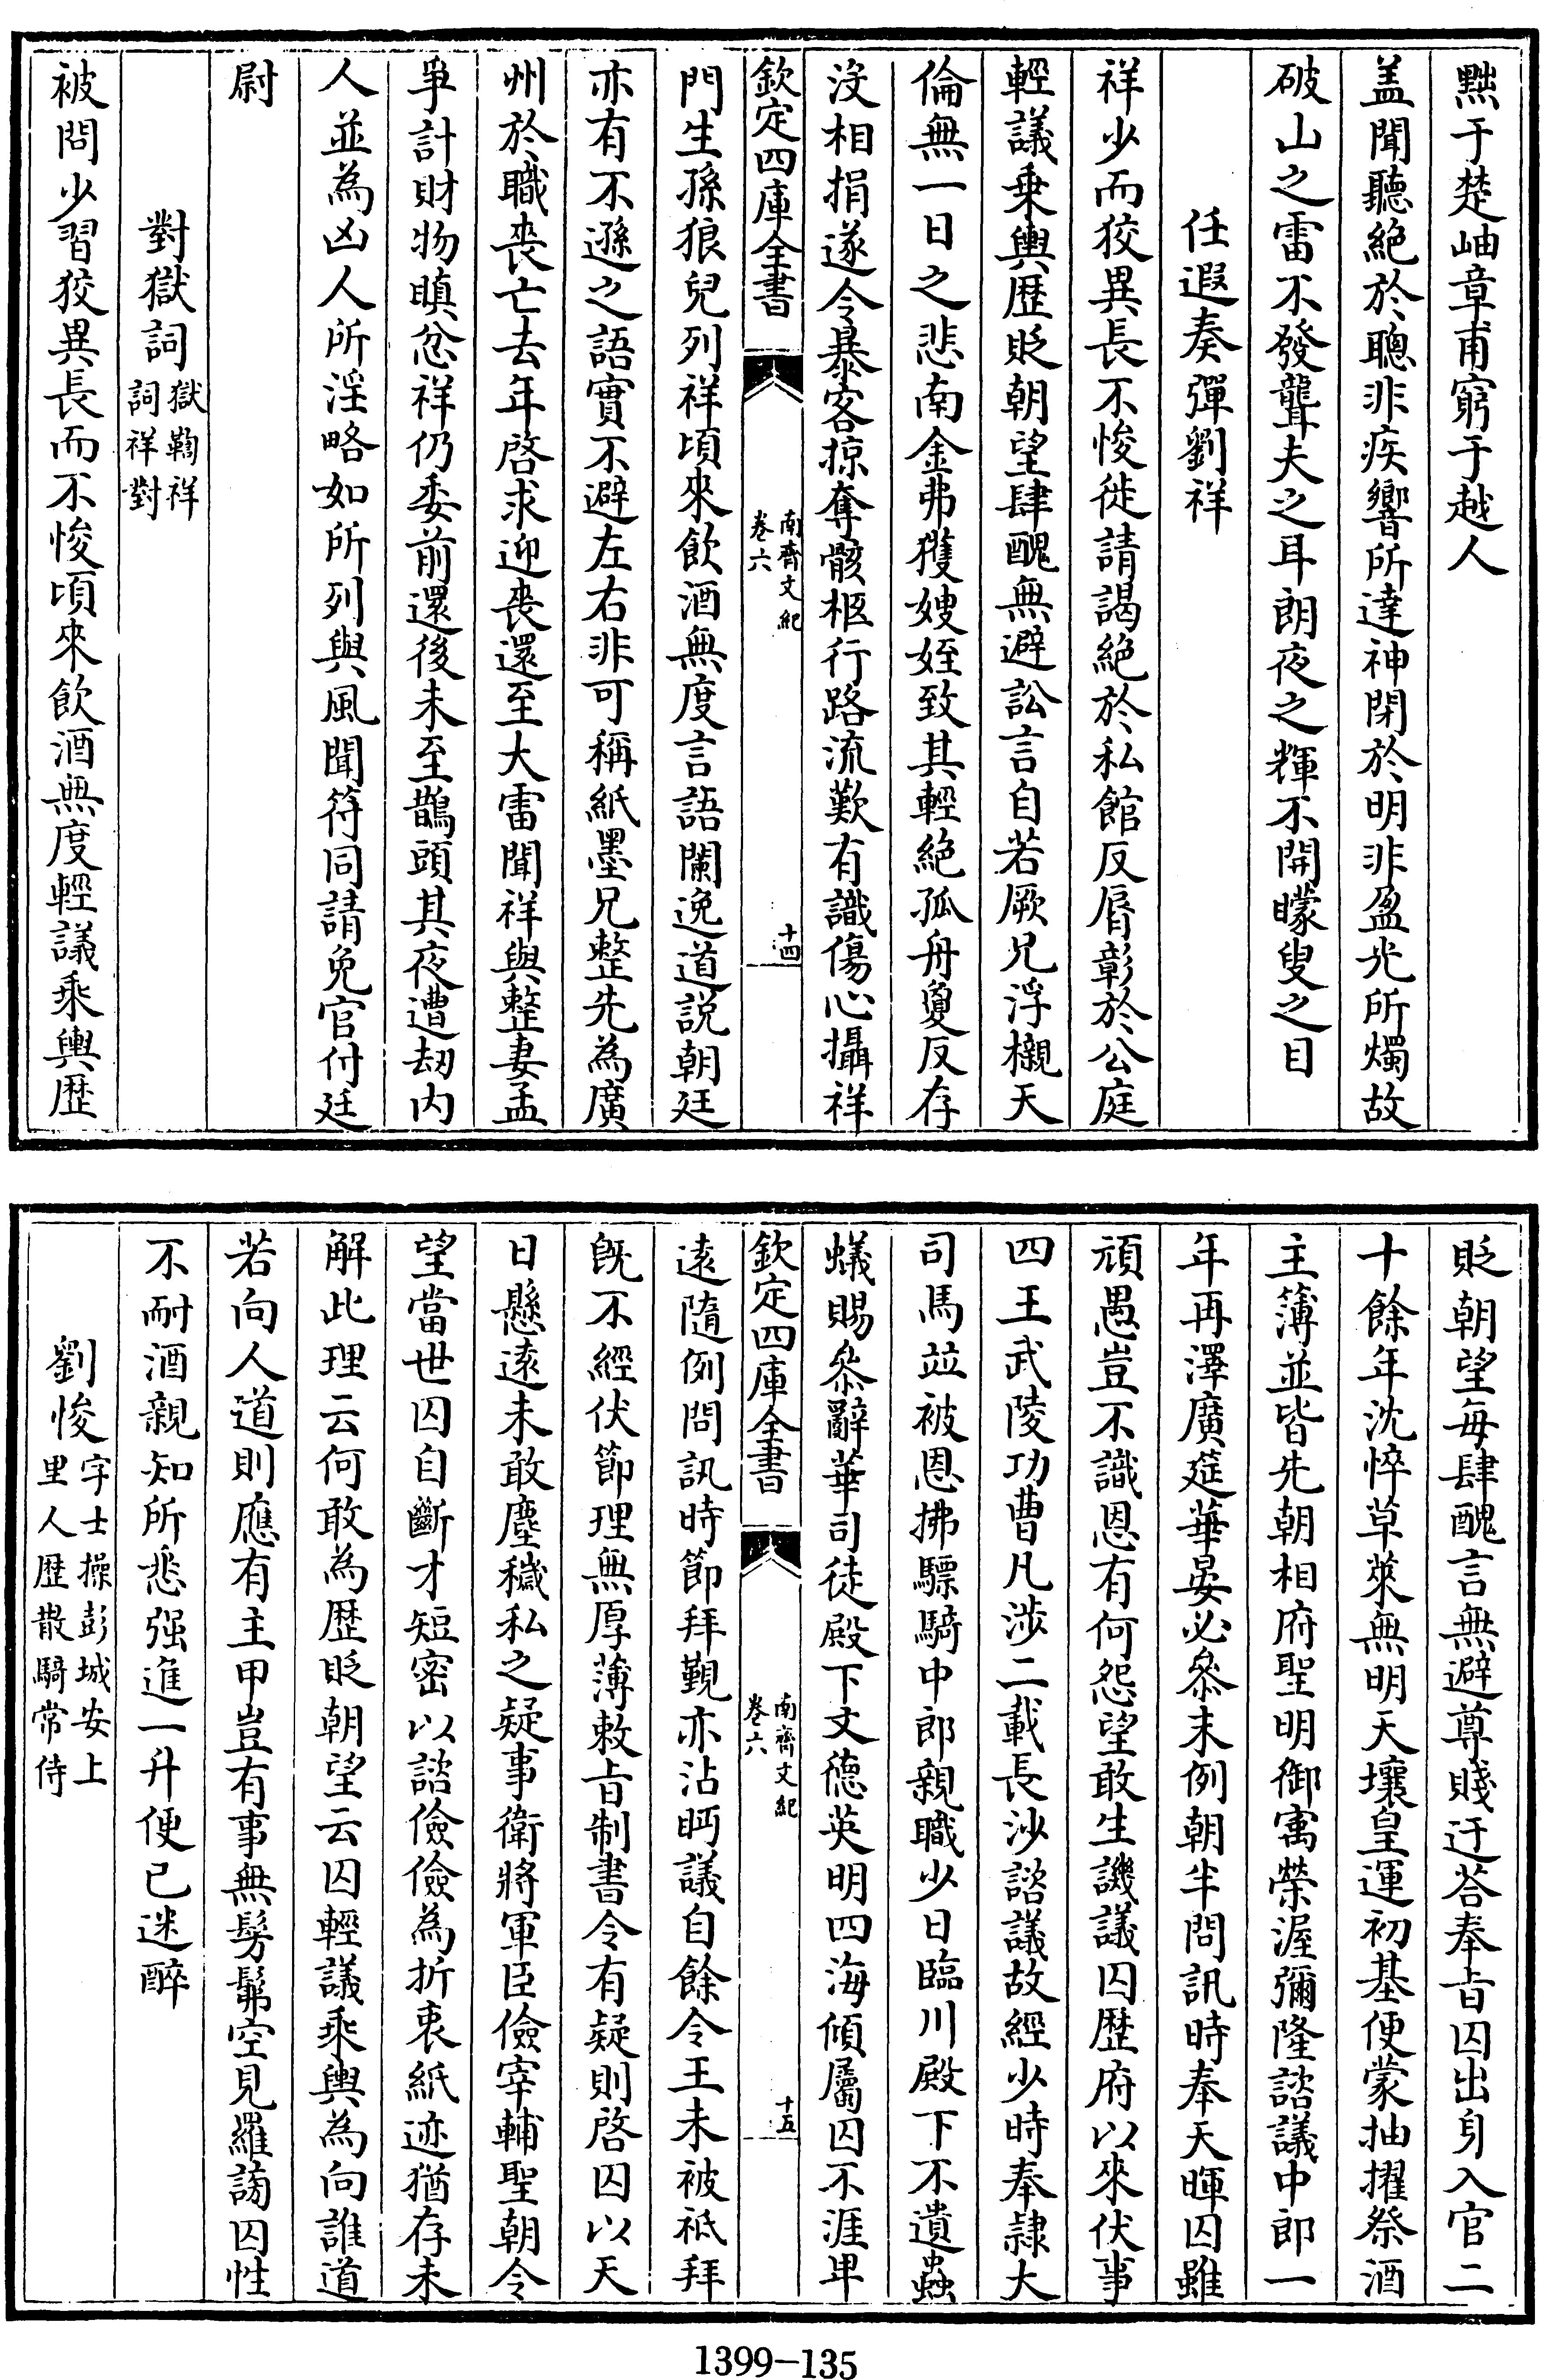 黜于楚岫章甫窮于越人
盖聞聽絶於聰非疾響所達神閉於明非盈光所燭故
破山之雷不發聾夫之耳朗夜之輝不開矇叟之目
任遐奏彈劉祥
祥少而狡異長不悛徙請謁絶於私館反脣彰於公庭
輕議乗輿歴貶朝望肆醜無避訟言自若厥兄浮櫬天
倫無一日之悲南金弗獲嫂姪致其輕絶孤舟夐反存
沒相捐遂令暴客掠奪骸柩行路流歎有識傷心攝祥
欽定四庫全書
南齊文紀
卷六
十四
門生孫狼兒列祥頃來飲酒無度言語闌逸道説朝廷
亦有不遜之語實不避左右非可稱紙墨兄整先為廣
州於職喪亡去年啓求迎喪還至大雷聞祥與整妻孟
爭計財物瞋忿祥仍委前還後未至鵲頭其夜遭刼内
人並為凶人所淫略如所列與風聞符同請免官付廷
尉
對獄詞
獄鞫祥
詞祥對
被問少習狡異長而不悛頃來飲酒無度輕議乘輿歴
貶朝望每肆醜言無避尊賤迂荅奉旨囚出身入官二
十餘年沈悴草萊無明天壤皇運初基便蒙抽擢祭酒
主簿並皆先朝相府聖明御寓榮渥彌隆諮議中郎一
年再澤廣筵華宴必叅末例朝半問訊時奉天暉囚雖
頑愚豈不識恩有何怨望敢生譏議囚歴府以來伏事
四王武陵功曹凡涉二載長沙諮議故經少時奉隷大
司馬竝被恩拂驃騎中郎親職少日臨川殿下不遺蟲
蟻賜叅辭華司徒殿下文德英明四海傾屬囚不涯卑
欽定四庫全書
南齊文紀
卷六
十五
逺隨例問訊時節拜覲亦沾眄議自餘令王未被祗拜
既不經伏節理無厚薄敕旨制書令有疑則啓囚以天
日懸逺未敢塵穢私之疑事衛將軍臣儉宰輔聖朝令
望當世囚自斷才短密以諮儉儉為折衷紙迹猶存未
解此理云何敢為歴貶朝望云囚輕議乘輿為向誰道
若向人道則應有主甲豈有事無髣髴空見羅謗囚性
不耐酒親知所悉强進一升便已迷醉
劉悛
字士操彭城安上
里人歴散騎常侍
1399-135